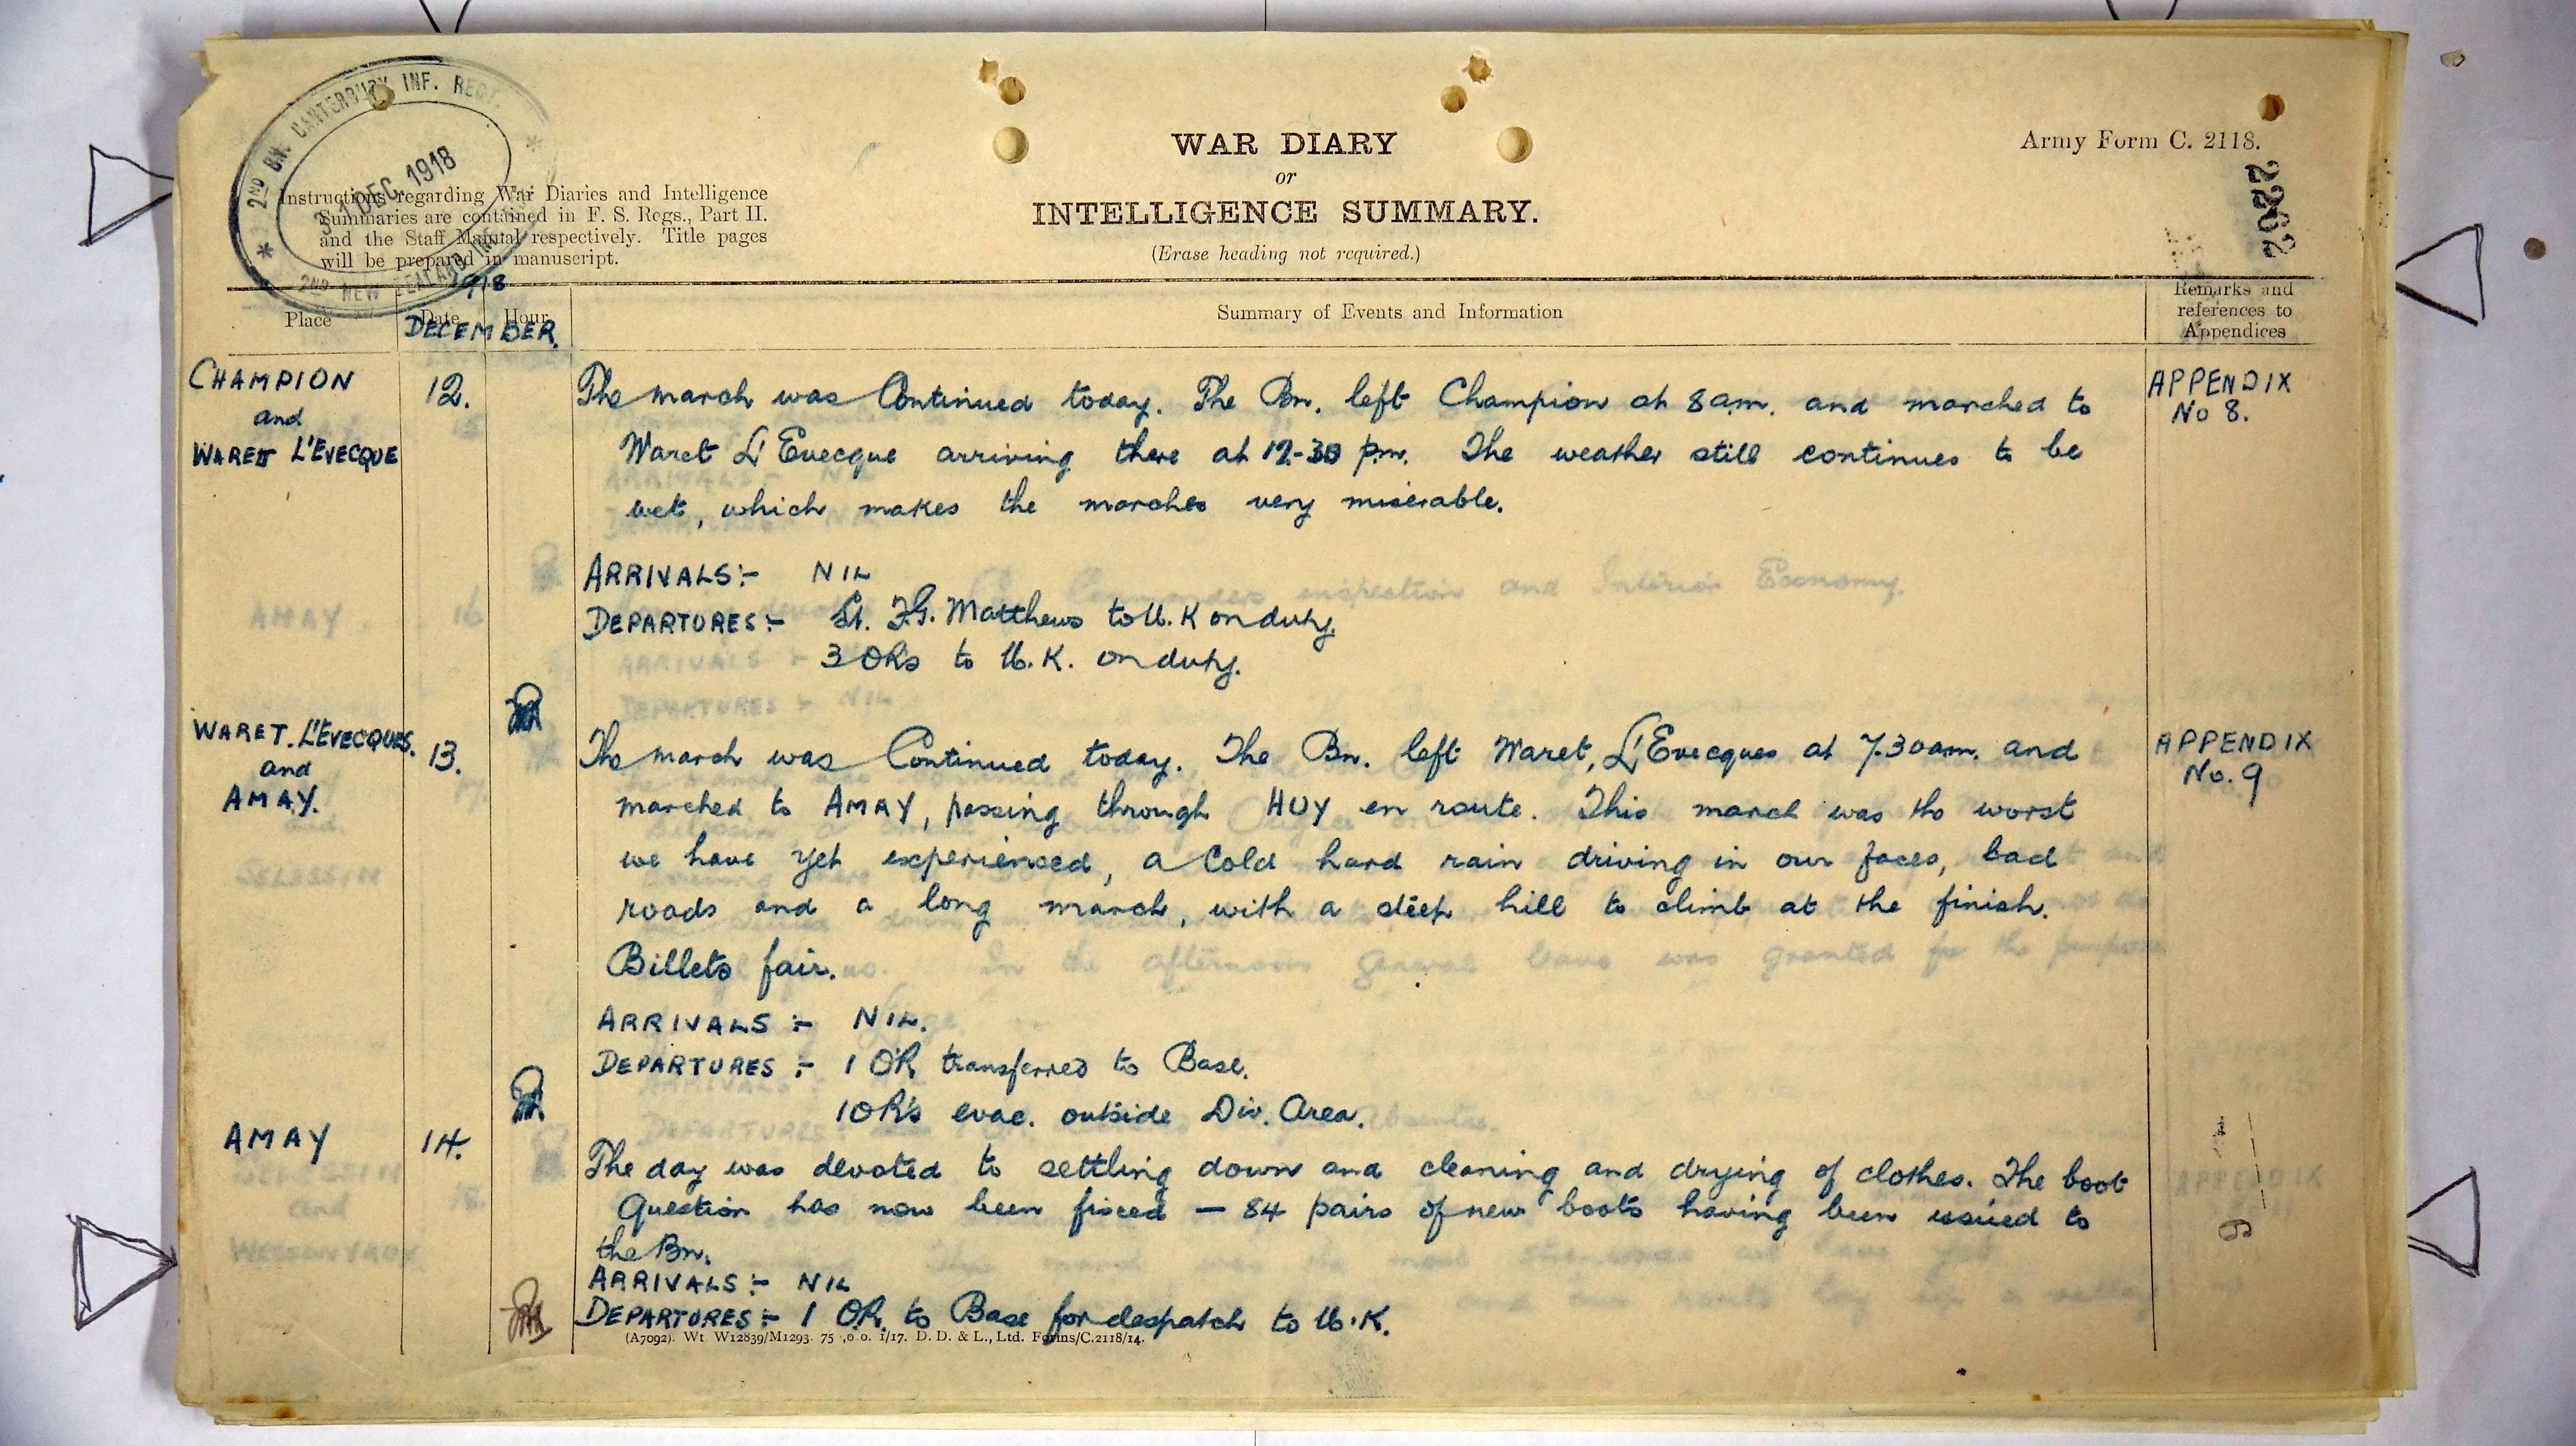 2ND BN. CANTERBURY INF. REGT.
31 DEC. 1918
2ND NEW ZEALAND INF.
Instructions regarding War Diaries and Intelligence
Summaries are contained in F. S. Regs., Part II.
and the Staff Manual respectively. Title pages
will be prepared in manuscript.
WAR DIARY
or
INTELLIGENCE SUMMARY.
(Erase heading not required.)
Army Form C. 2118.
2262
1918
Place
Date
Hour
DECEMBER.
Summary of Events and Information
Remarks and
references to
Appendices
CHAMPION
and
WARET L'EVECQUE
12.
The march was Continued today. The Bn. left Champion at 8 a.m. and marched to
Waret L'Evecque arriving there at 12-30 p.m. The weather still continues to be
wet, which makes the marches very miserable.
APPENDIX
No 8.
ARRIVALS:- NIL
DEPARTURES:- Lt. F.G. Matthews to U.K on duty.
3 ORs to U.K. on duty.
WARET. L'EVECQUES.
and
AMAY.
13.
The march was Continued today. The Bn. left Waret, L'Evecques at 7.30 am. and
marched to AMAY, passing through HUY en route. This march was the worst
we have yet experienced, a Cold hard rain driving in our faces, bad
roads and a long march, with a steep hill to climb at the finish.
Billets fair.
APPENDIX
No. 9
ARRIVALS:- NIL.
DEPARTURES:- 1 OR transferred to Base.
1 OR's evac. outside Div. Area.
AMAY
14.
The day was devoted to settling down and cleaning and drying of clothes. The boot
Question has now been fixed — 84 pairs of new boots having been issued to
the Bn.
ARRIVALS:- NIL
DEPARTURES:- 1 OR. to Base for despatch to U.K.
(A7092). Wt W12839/M1293. 75 ,0 0. 1/17. D. D. & L., Ltd. Forms/C.2118/14.